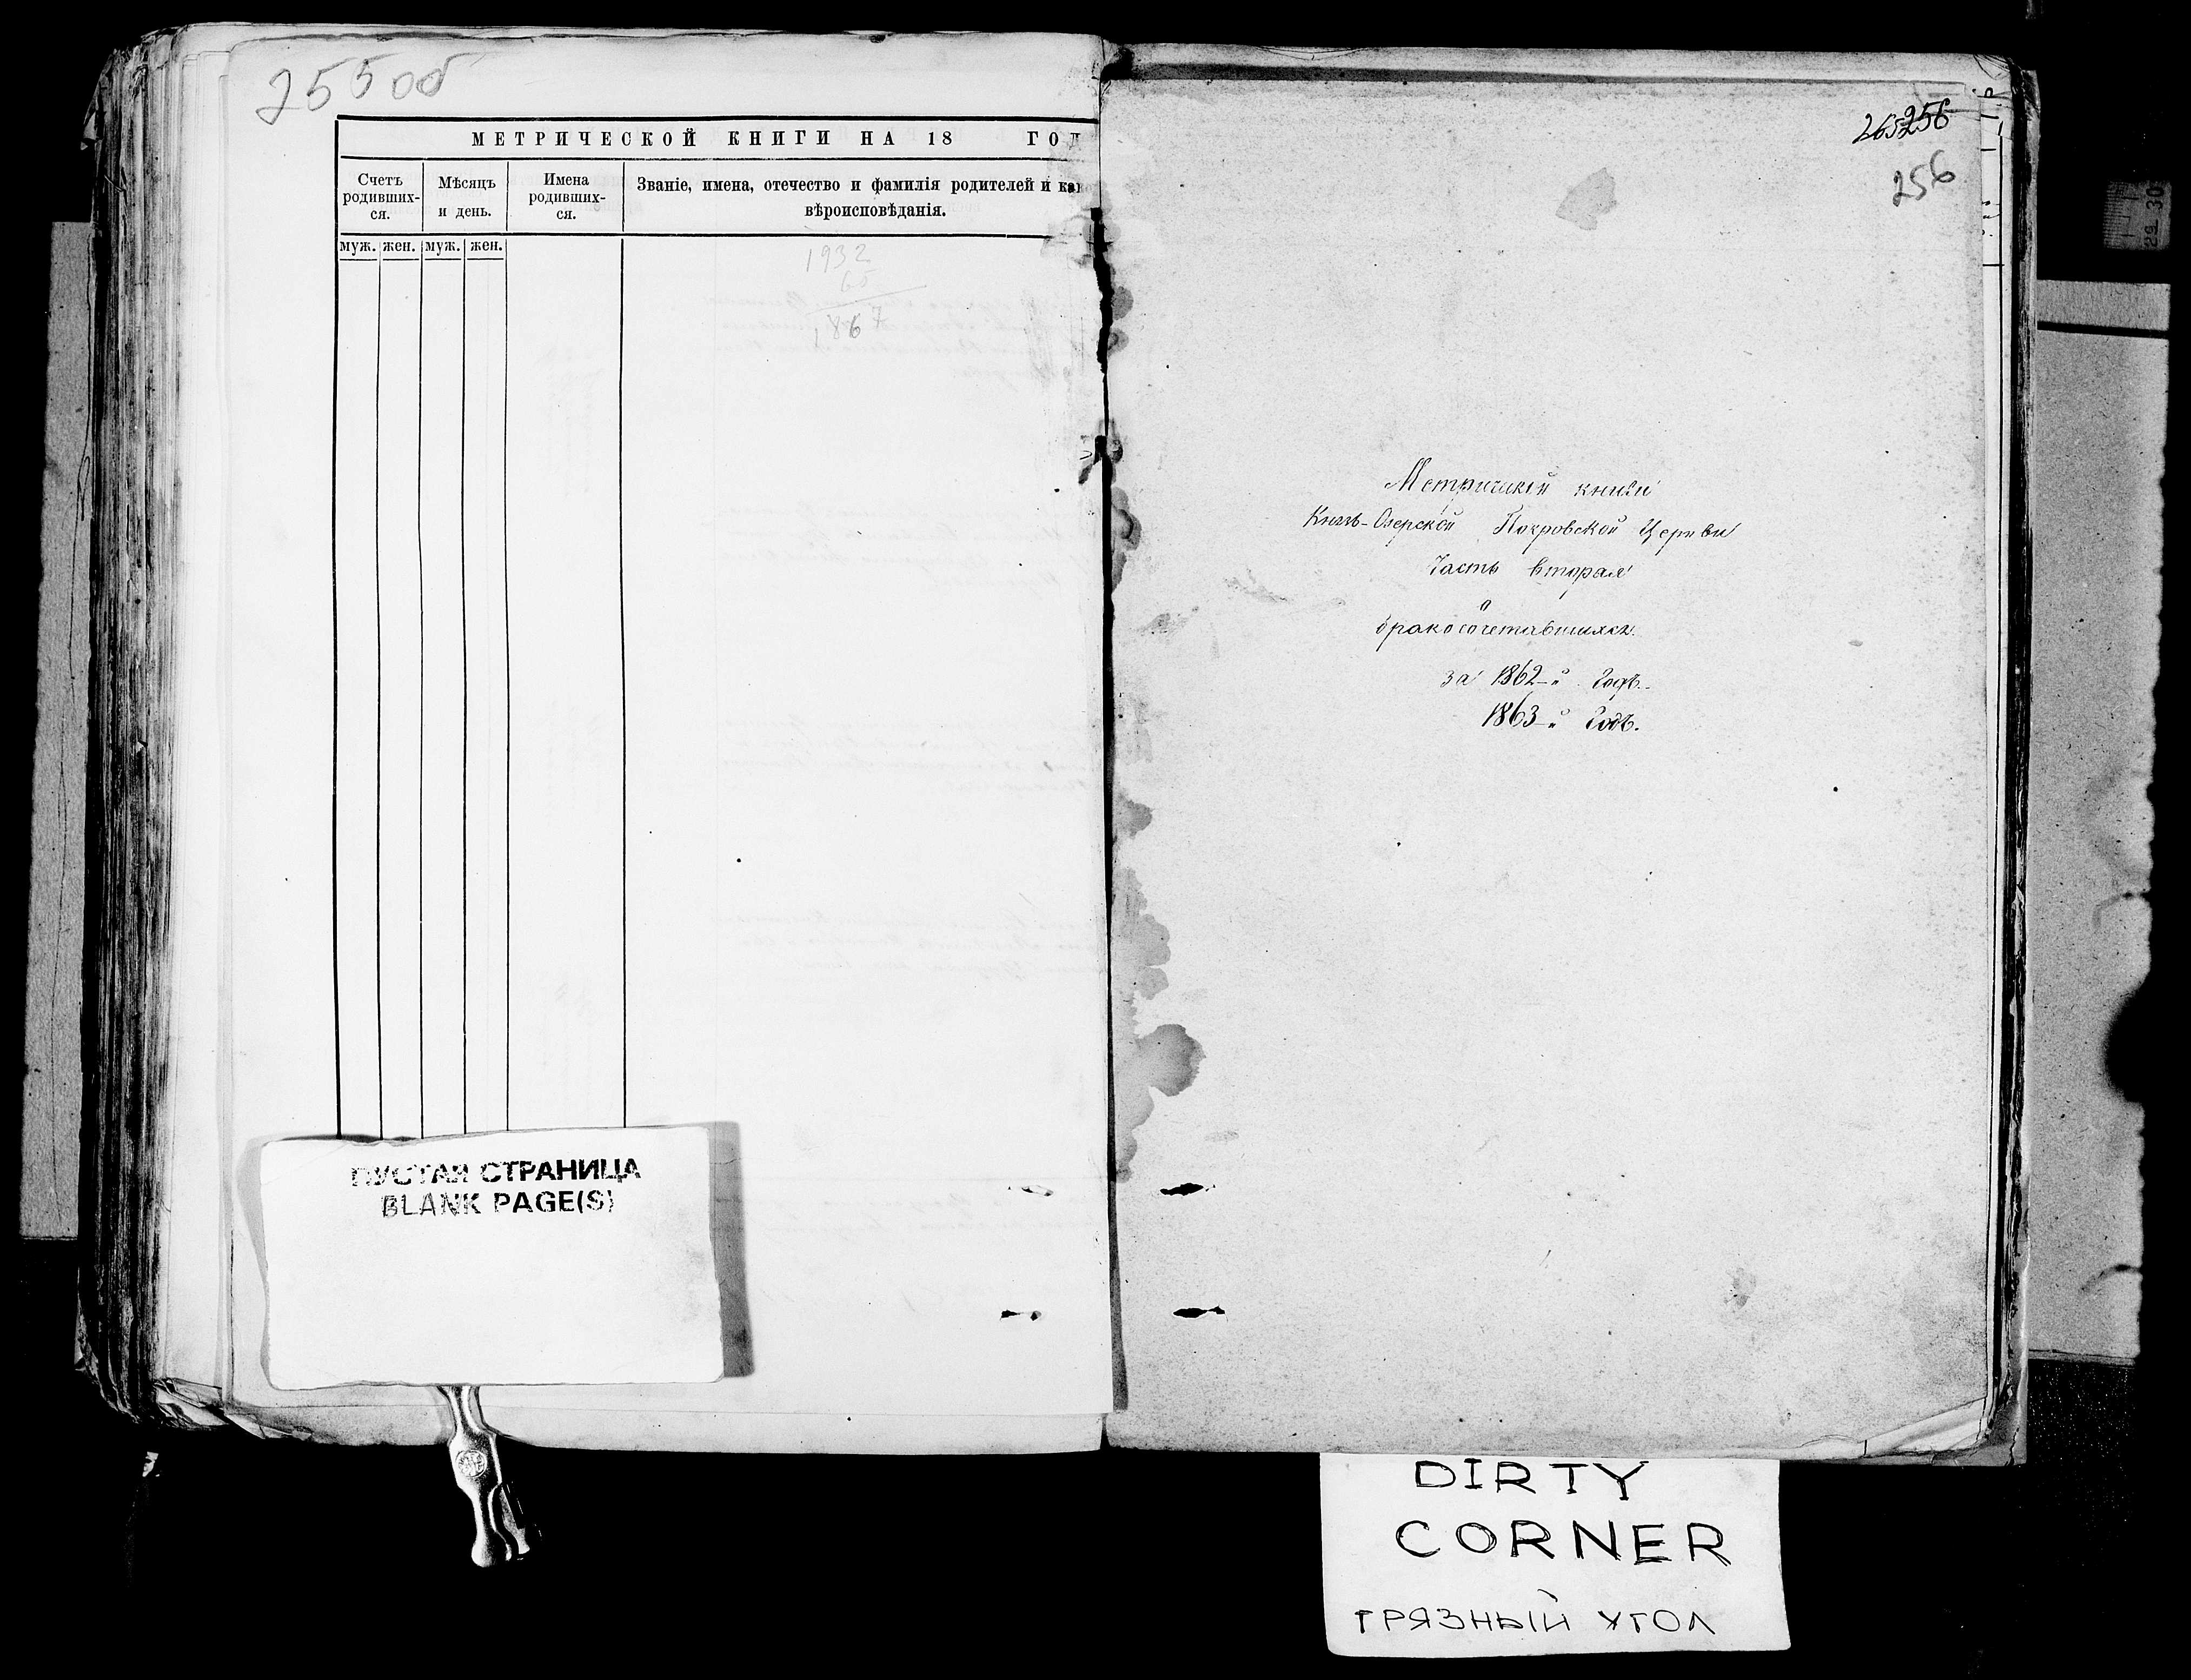 255об
МЕТРИЧЕСКОЙ КНИГИ НА 18 ГОД
Счетъ родивших-ся.
Мѣсяцъ и день.
Имена родивших-ся.
Званіе, имена, отечество и фамилія родителей и как
вѣроисповѣданія.
муж. жен. муж. жен.
1932
65
1867
ПУСТАЯ СТРАНИЦА
BLANK PAGE(S)
265 256
256
Метрической книги
Князь-Озерской Покровской Церкви
Часть вторая
о
бракосочетавшихся.
за 1862-й Годъ.
1863-й Годъ.
29 30
DIRTY
CORNER
ГРЯЗНЫЙ УГОЛ